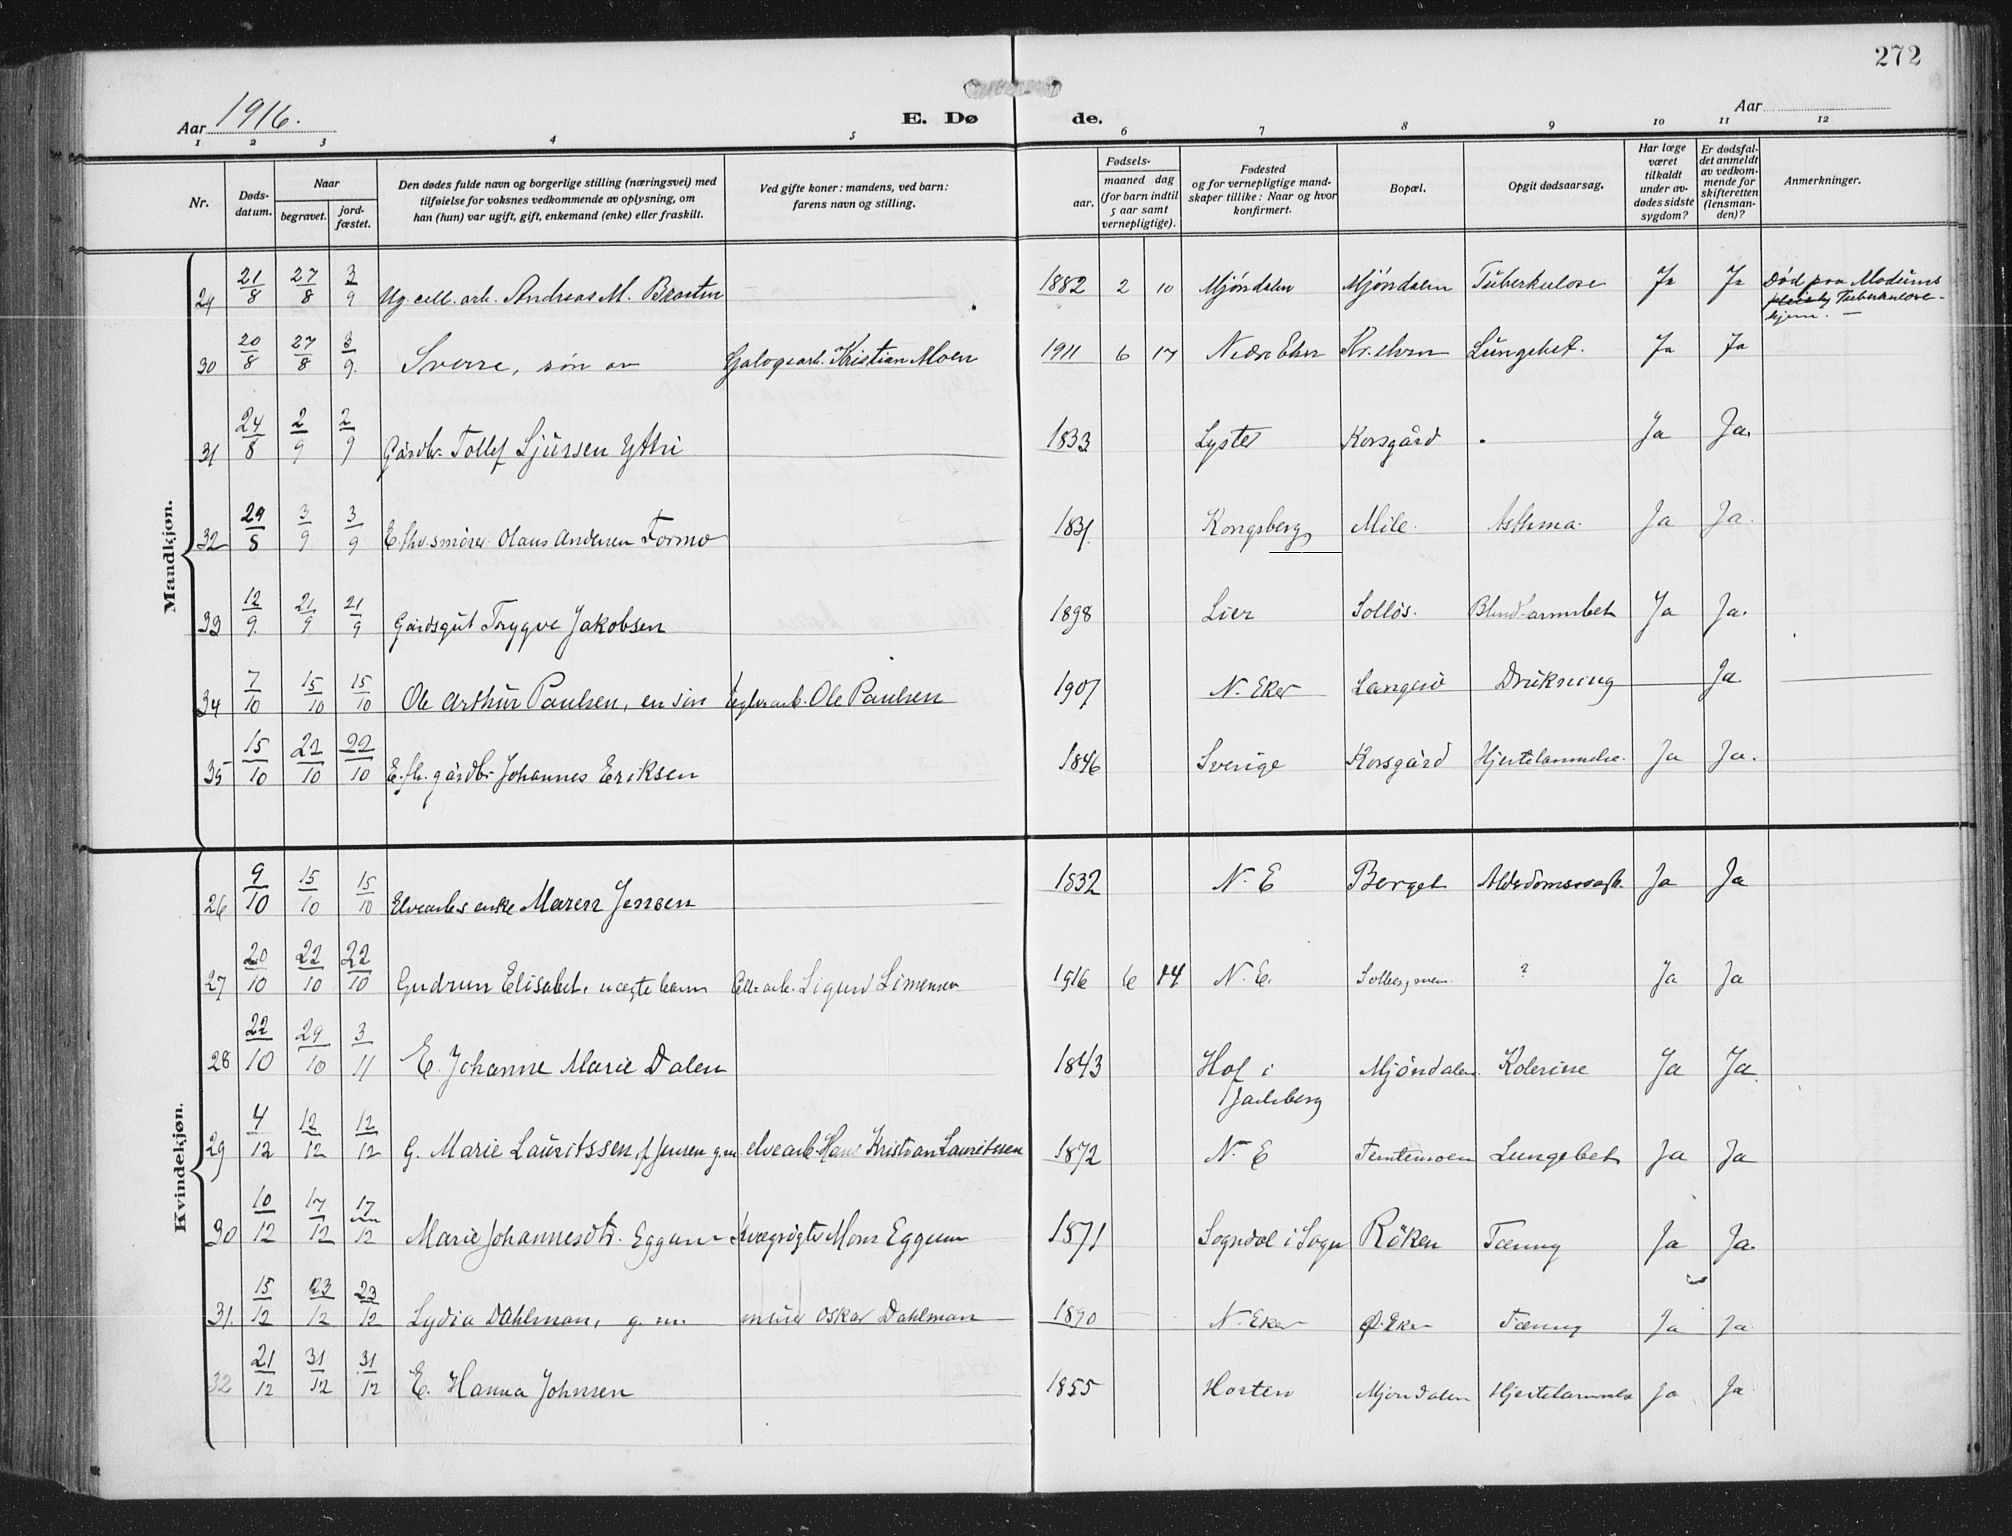 272
Aar 1916.
E. Dø de.
Aar
1 2 3 4 5 6 7 8 9 10 11 12
Nr.
Døds-
datum.
Naar
begravet.
jord-
fæstet.
Den dødes fulde navn og borgerlige stilling (næringsvei) med
tilføielse for voksnes vedkommende av oplysning, om
han (hun) var ugift, gift, enkemand (enke) eller fraskilt.
Ved gifte koner: mandens, ved barn:
farens navn og stilling.
Fødsels-
aar.
maaned dag
(for barn indtil
5 aar samt
vernepligtige).
Fødested
og for vernepligtige mand-
skaper tillike: Naar og hvor
konfirmert.
Bopæl.
Opgit dødsaarsag.
Har læge
været
tilkaldt
under av-
dødes sidste
sygdom?
Er dødsfal-
det anmeldt
av vedkom-
mende for
skifteretten
(lensman-
den)?
Anmerkninger.
Mandkjøn.
29 21/8 27/8 3/9 Ug. cell. arb. Andreas M. Braaten 1882 2 10 Mjöndalen Mjöndalen Tuberkulose Ja Ja Död paa Modums
Tuberkulose-
hjem.
30 20/8 27/8 3/9. Sverre, sön av Kristian Moen 1911 6 17 Nedre Eker Kr. elven Lungebet. Ja Ja
31 24/8 2/9 2/9 Gårdbr. Tollef Sjursen Ytri 1833 Lyster Korsgård Ja Ja.
32 29/8 3/9 3/9 E. fhv. smörer Olaus Andersen Formo 1831. Kongsberg Mile. Asthma. Ja Ja.
33 12/9. 21/9 21/9 Gårdsgut Trygve Jakobsen 1898 Lier Sollös. Blindtarmsbet Ja Ja.
34 7/10 15/10 15/10 Ole Arthur Paulsen, en sön Teglverarb. Ole Paulsen 1907 N. Eker Langesö Drukning Ja
35 15/10 22/10 22/10 E. fh. gårdbr. Johannes Eriksen 1846 Sverige Korsgård Hjertelammelse. Ja Ja.
Kvindekjøn.
26 9/10 15/10 15/10 Elvearb.s enke Maren Jensen 1832 N. E Berget Alderdomssvagh. Ja Ja
27 20/10 22/10 22/10 Gudrun Elisabet, uægte barn Cellr. arb. Sigurd Simensen 1916 6 14 N. E. Solbergmoen ? Ja Ja
28 22/10 29/10 3/11 E. Johanne Marie Dalen 1843 Hof i
Jarlsberg Mjöndalen. Kolerine Ja Ja
29 4/12 12/12 12/12 G. Marie Lauritssen, f. Jensen g.m. elvearb. Hans Kristian Lauritssen 1872 N. E Temtemoen Lungebet Ja Ja
30 10/12 17/12 17/12 Marie Johannesdtr. Eggum Kvægrögter Mons Eggum 1871 Sogndal i Sogn Röken Tæring Ja Ja.
31. 15/12 23/12 23/12 Lydia Dahlman, g. m. murer Oskar Dahlman 1890 N. Eker Ö. Eker Tæring Ja Ja.
32 21/12 31/12 31/12 E. Hanna Johnsen 1855 Horten Mjöndalen Hjertelammelse Ja Ja